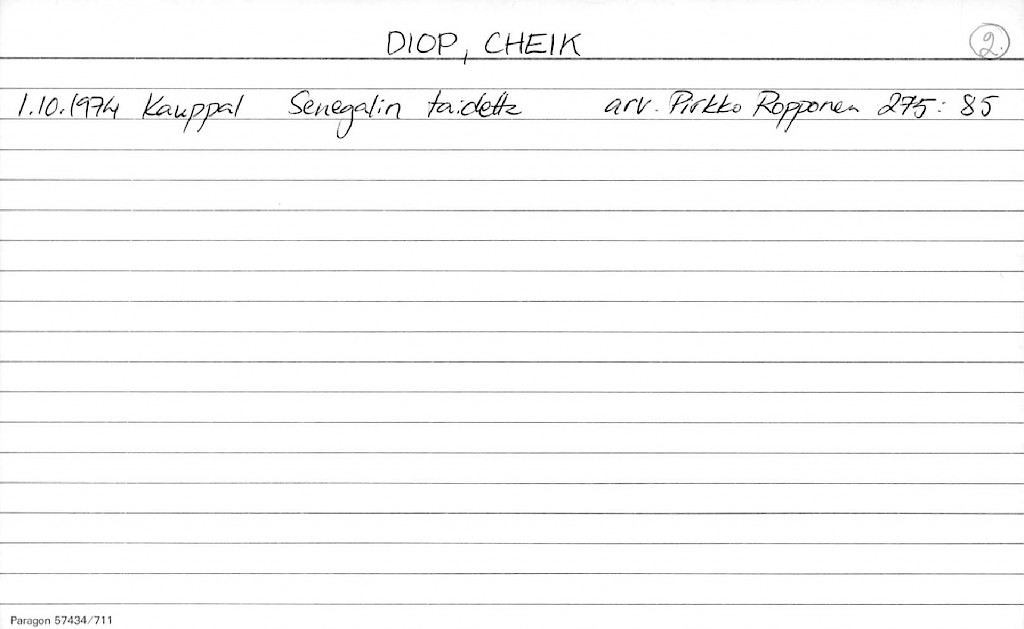 DIOP, CHEIK
2.
1.10.1974 Kauppal Senegalin taidetta arv. Pirkko Ropponen 275: 85
Paragon 57434/711